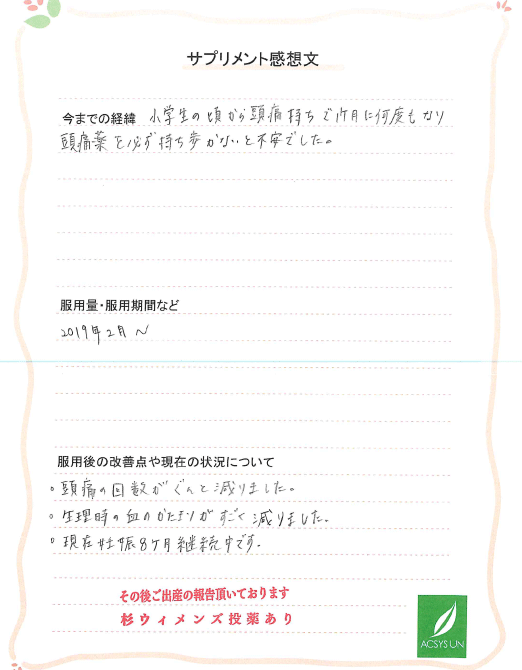 サプリメント感想文
今までの経緯 小学生の頃から頭痛持ちで1ケ月に何度もなり
頭痛薬を必ず持ち歩かないと不安でした。
服用量・服用期間など
2019年2月〜
服用後の改善点や現在の状況について
。頭痛の回数がぐんと減りました。
。生理時の血のかたまりがすごく減りました。
。現在妊娠8ケ月継続中です。
その後ご出産の報告頂いております
杉ウィメンズ投薬あり
ACSYS UN